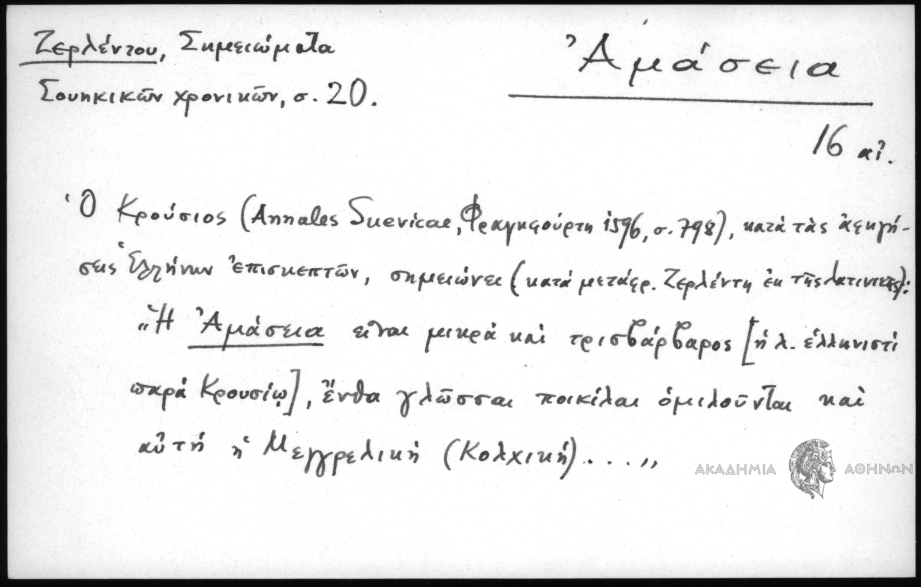 Ζερλέντου, Σημειώματα
Σουηκικῶν χρονικῶν, σ. 20.
Ἀμάσεια
16 αἰ.
Ὁ Κρούσιος (Annales Suevicae, Φραγκφούρτη 1596, σ. 798), κατὰ τὰς ἀφηγή-
σεις Ἑλλήνων ἐπισκεπτῶν, σημειώνει (κατὰ μετάφρ. Ζερλέντη ἐκ τῆς λατινικῆς):
„Ἡ Ἀμάσεια εἶναι μικρὰ καὶ τρισβάρβαρος [ἡ λ. ἑλληνιστὶ
παρὰ Κρουσίῳ], ἔνθα γλῶσσαι ποικίλαι ὁμιλοῦνται καὶ
αὐτὴ ἡ Μεγγρελικὴ (Κολχικὴ) ....„
ΑΚΑΔΗΜΙΑ ΑΘΗΝΩΝ